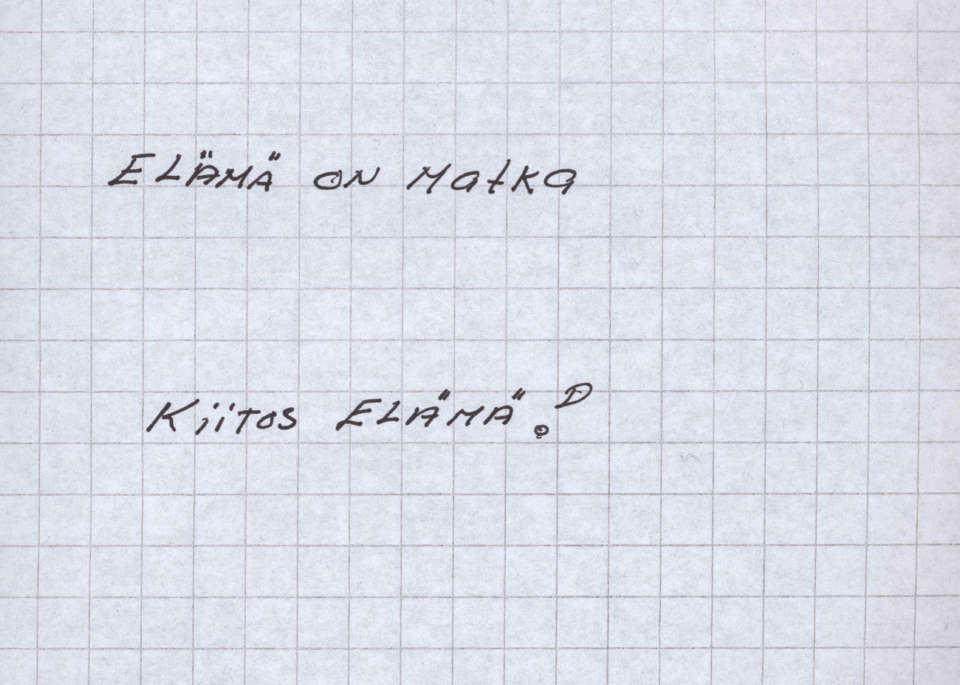 ELÄMÄ ON MatKa
KiiTOS ELÄMÄ.D